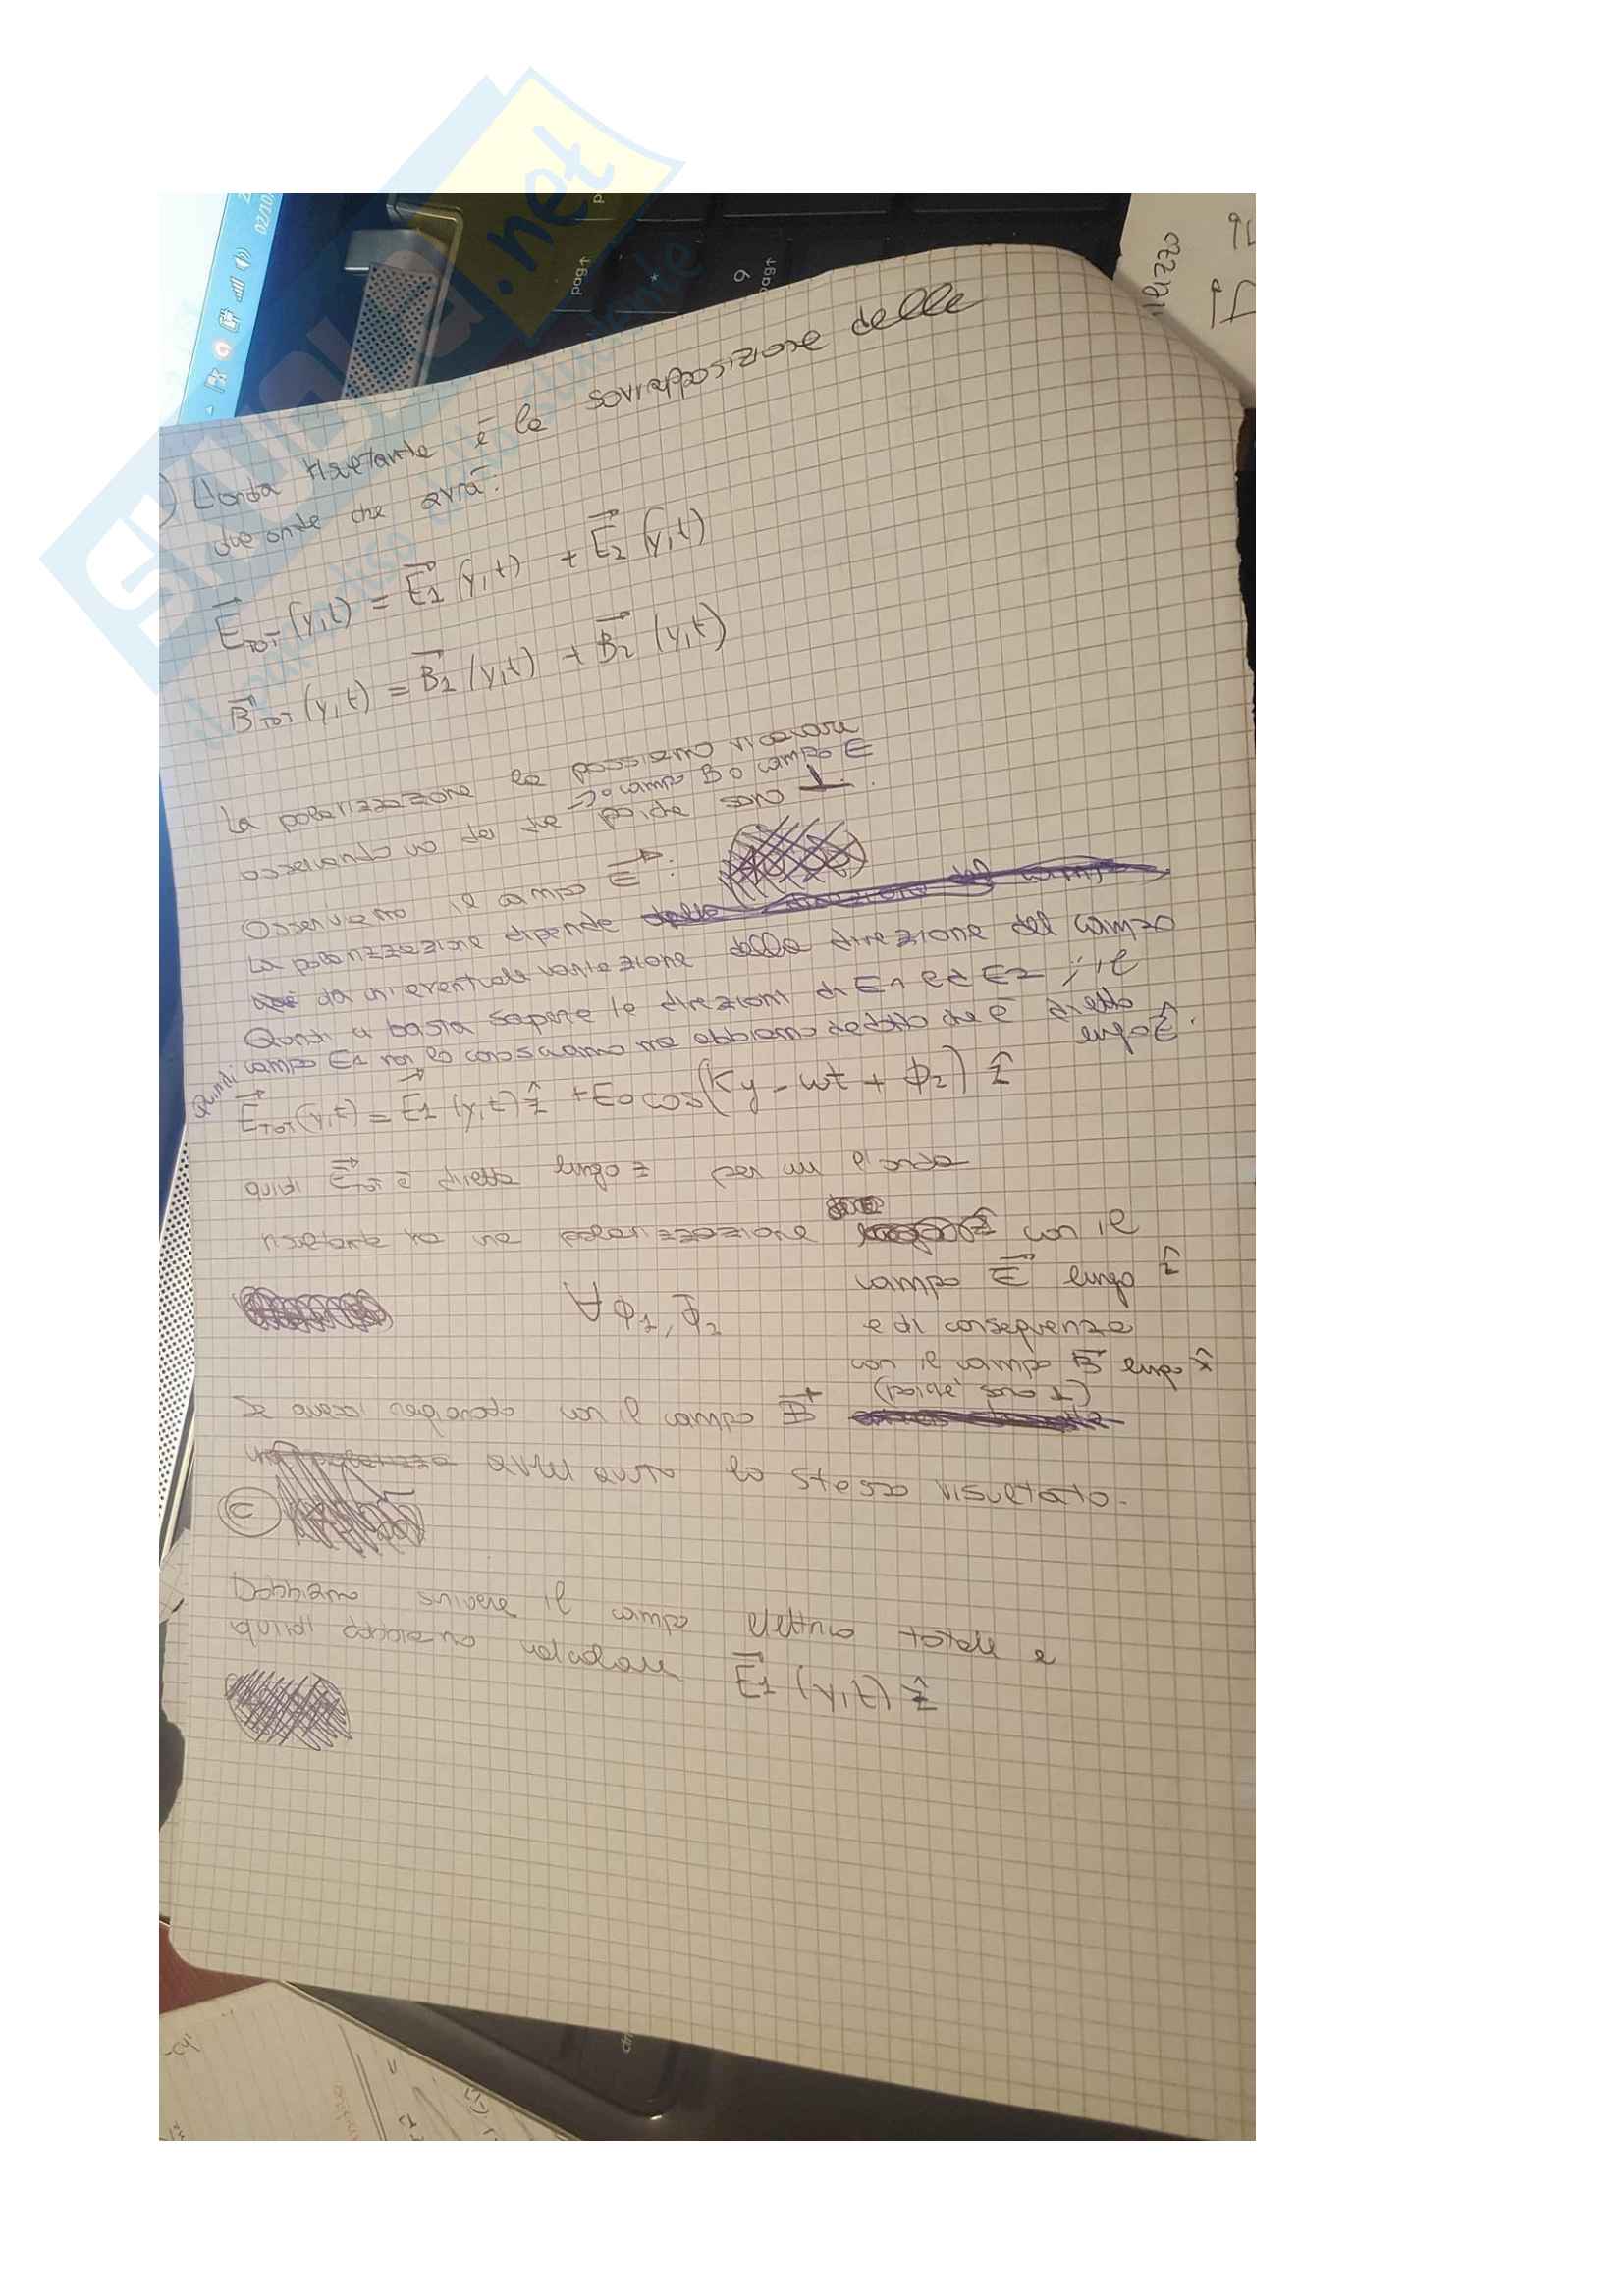 ) L'onda risultante è la sovrapposizione delle
due onde che avrà:
E⃗TOT (y,t) = E⃗1 (y,t) + E⃗2 (y,t)
B⃗TOT (y,t) = B⃗1 (y,t) + B⃗2 (y,t)
La polarizzazione la possiamo ricavare
osservando un dei due => o campo B o campo E
poiché sono ⊥.
Osserviamo il campo E⃗:
La polarizzazione dipende
da un'eventuale variazione della direzione del campo
Quindi a basta sapere le direzioni di E1 ed E2; il
campo E1 non lo conosciamo ma abbiamo detto che è diretto
lungo ẑ.
Quindi
E⃗TOT (y,t) = E⃗1 (y,t) ẑ + E0 cos(Ky - wt + ϕ2) ẑ
quindi E⃗TOT è diretto lungo z per cui l'onda
risultante ha una polarizzazione con il
campo E⃗ lungo ẑ
∀ ϕ1, ϕ2
e di conseguenza
con il campo B⃗ lungo x̂
(poiché sono ⊥)
Se avessi ragionato con il campo B⃗
avrei avuto lo stesso risultato.
C
Dobbiamo scrivere il campo elettrico totale e
quindi dobbiamo calcolare E⃗1 (y,t) ẑ
SKUOLA.net
02/10/
pag↑
*
9
pag↑